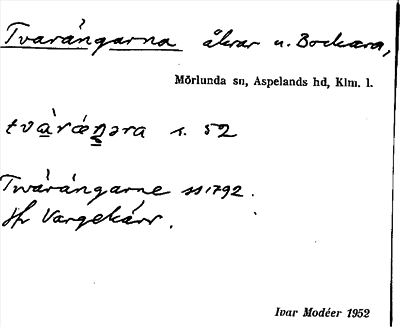 Tvarángarna åkrar u. Bockara,
Mörlunda sn, Aspelands hd, Klm. l.
tvàráŋəra s. 52
Twärángarne ss 1792.
Jfr Vargekärr.
Ivar Modéer 1952